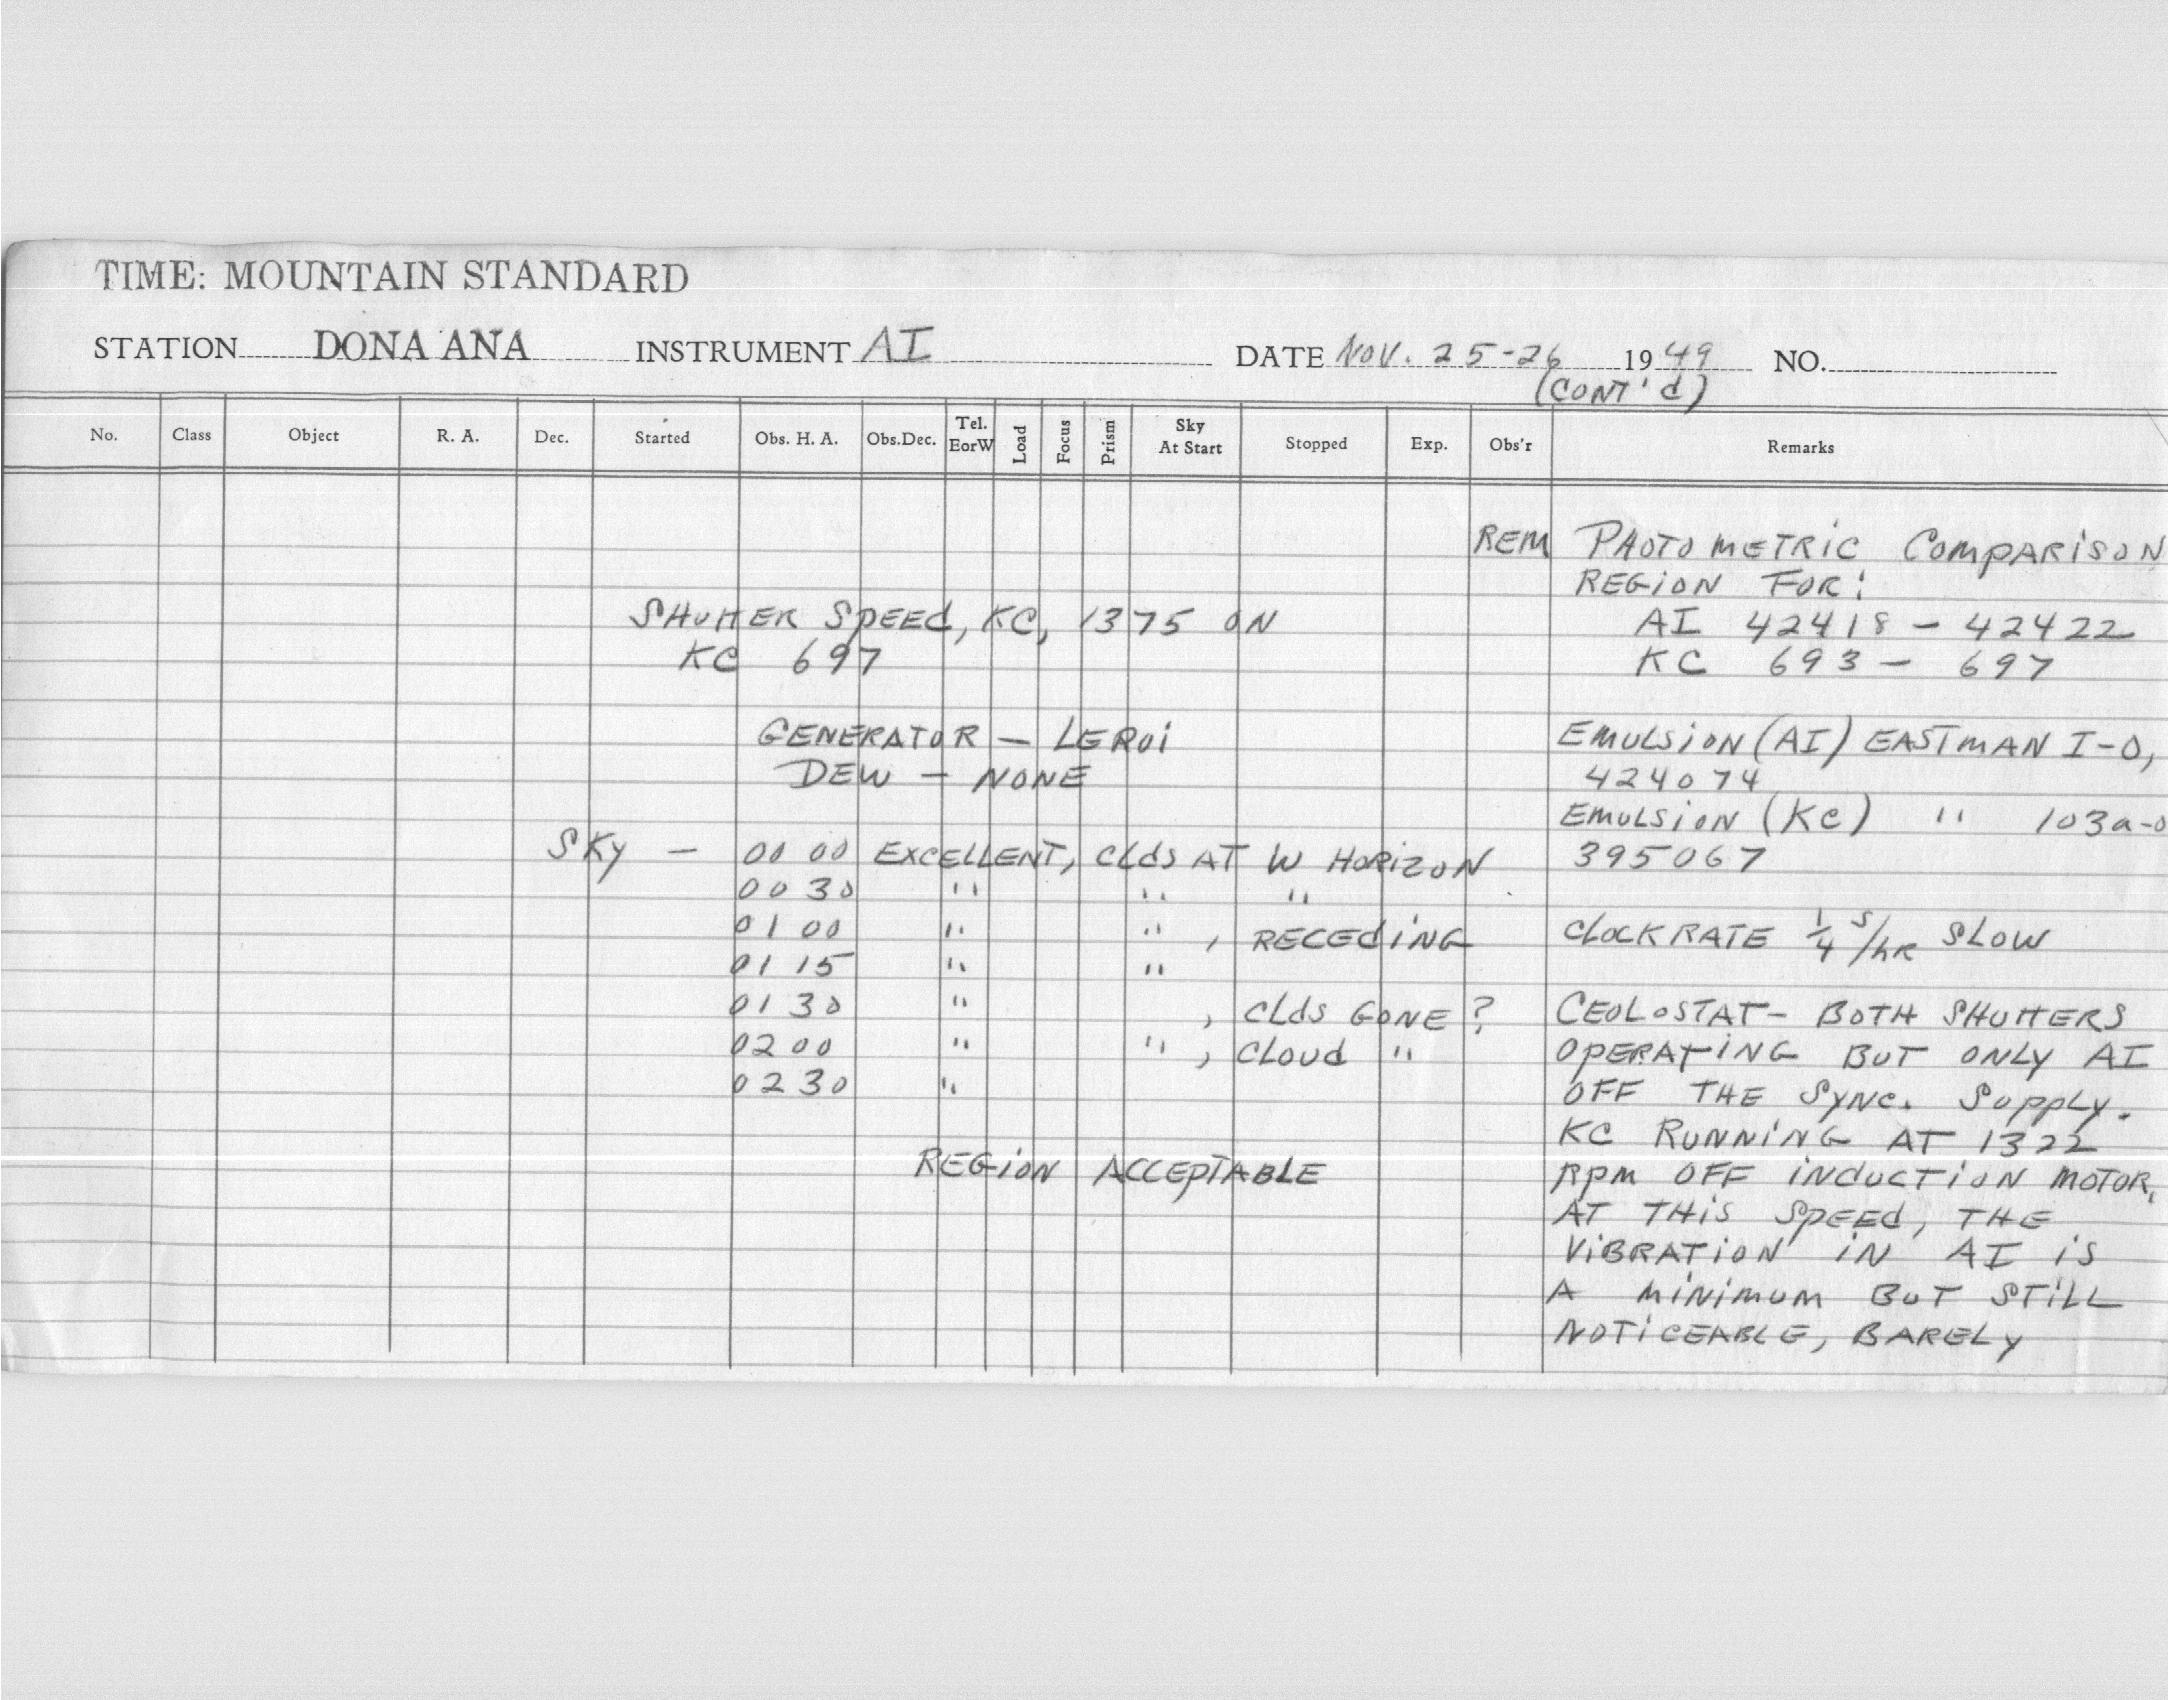 TIME: MOUNTAIN STANDARD
STATION DONA ANA INSTRUMENT AI DATE NOV. 25-26 1949 NO.
(CONT'd)
No. Class Object R. A. Dec. Started Obs. H. A. Obs.Dec. Tel. EorW Load Focus Prism Sky At Start Stopped Exp. Obs'r Remarks
REM PHOTOMETRIC COMPARISON
REGION FOR:
SHUTTER SPEED, KC, 1375 ON AI 42418 - 42422
KC 697 KC 693 - 697
GENERATOR - LEROI EMULSION (AI) EASTMAN I-O,
DEW - NONE 424074
EMULSION (KC) " 103a-O
SKY - 00 00 EXCELLENT, CLdS AT W HORIZON 395067
00 30 " " "
01 00 " " , RECEDING CLOCK RATE 1/4 s/hR SLOW
01 15 " "
01 30 " , CLdS GONE? CEOLOSTAT - BOTH SHUTTERS
02 00 " " , CLOUD " OPERATING BUT ONLY AI
02 30 " OFF THE SYNC. SUPPLY.
KC RUNNING AT 1322
REGION ACCEPTABLE RPM OFF INDUCTION MOTOR.
AT THIS SPEED, THE
VIBRATION IN AI IS
A MINIMUM BUT STILL
NOTICEABLE, BARELY